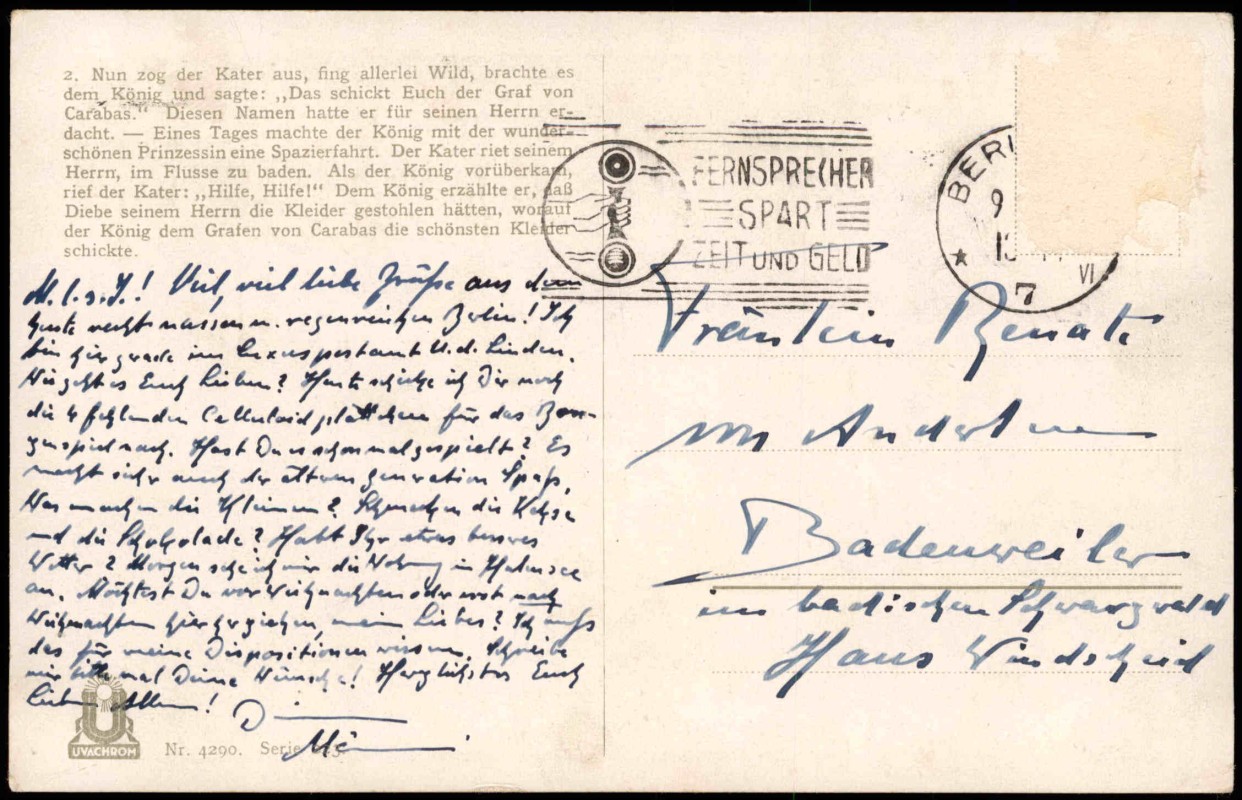 2. Nun zog der Kater aus, fing allerlei Wild, brachte es
dem König und sagte: „Das schickt Euch der Graf von
Carabas.“ Diesen Namen hatte er für seinen Herrn er-
dacht. — Eines Tages machte der König mit der wunder-
schönen Prinzessin eine Spazierfahrt. Der Kater riet seinem
Herrn, im Flusse zu baden. Als der König vorüberkam,
rief der Kater: „Hilfe, Hilfe!“ Dem König erzählte er, daß
Diebe seinem Herrn die Kleider gestohlen hätten, worauf
der König dem Grafen von Carabas die schönsten Kleider
schickte.
M. l. s. J.! Viel, viel liebe Grüße aus dem
heute recht nassen u. regenreichen Berlin! Ich
bin hier grade im Luxuspostamt U. d. Linden.
Wie geht es Euch Lieben? Heute schicke ich Dir noch
die 4 fehlenden Celluloidplättchen für das
nach. Hast Du es schon mal gespielt? Es
macht sicher auch der älteren Generation Spaß.
Was machen die Kleinen? Schmecken die Kekse
und die Schokolade? Habt Ihr etwas besseres
Wetter? Morgen seh ich mir die Wohnung in Halensee
an. Möchtest Du vor Weihnachten oder erst nach
Weihnachten hierher ziehen, mein Liebes? Ich muß
das für meine Dispositionen wissen. Schreibe
mir bitte mal Deine Wünsche! Herzlichst Euch
Lieben Allen! D
UVACHROM
Nr. 4290. Serie
FERNSPRECHER
SPART
ZEIT UND GELD
BERL
9
13
VI
7
Fräulein Renate
von
Badenweiler
im badischen Schwarzwald
Haus Windscheid